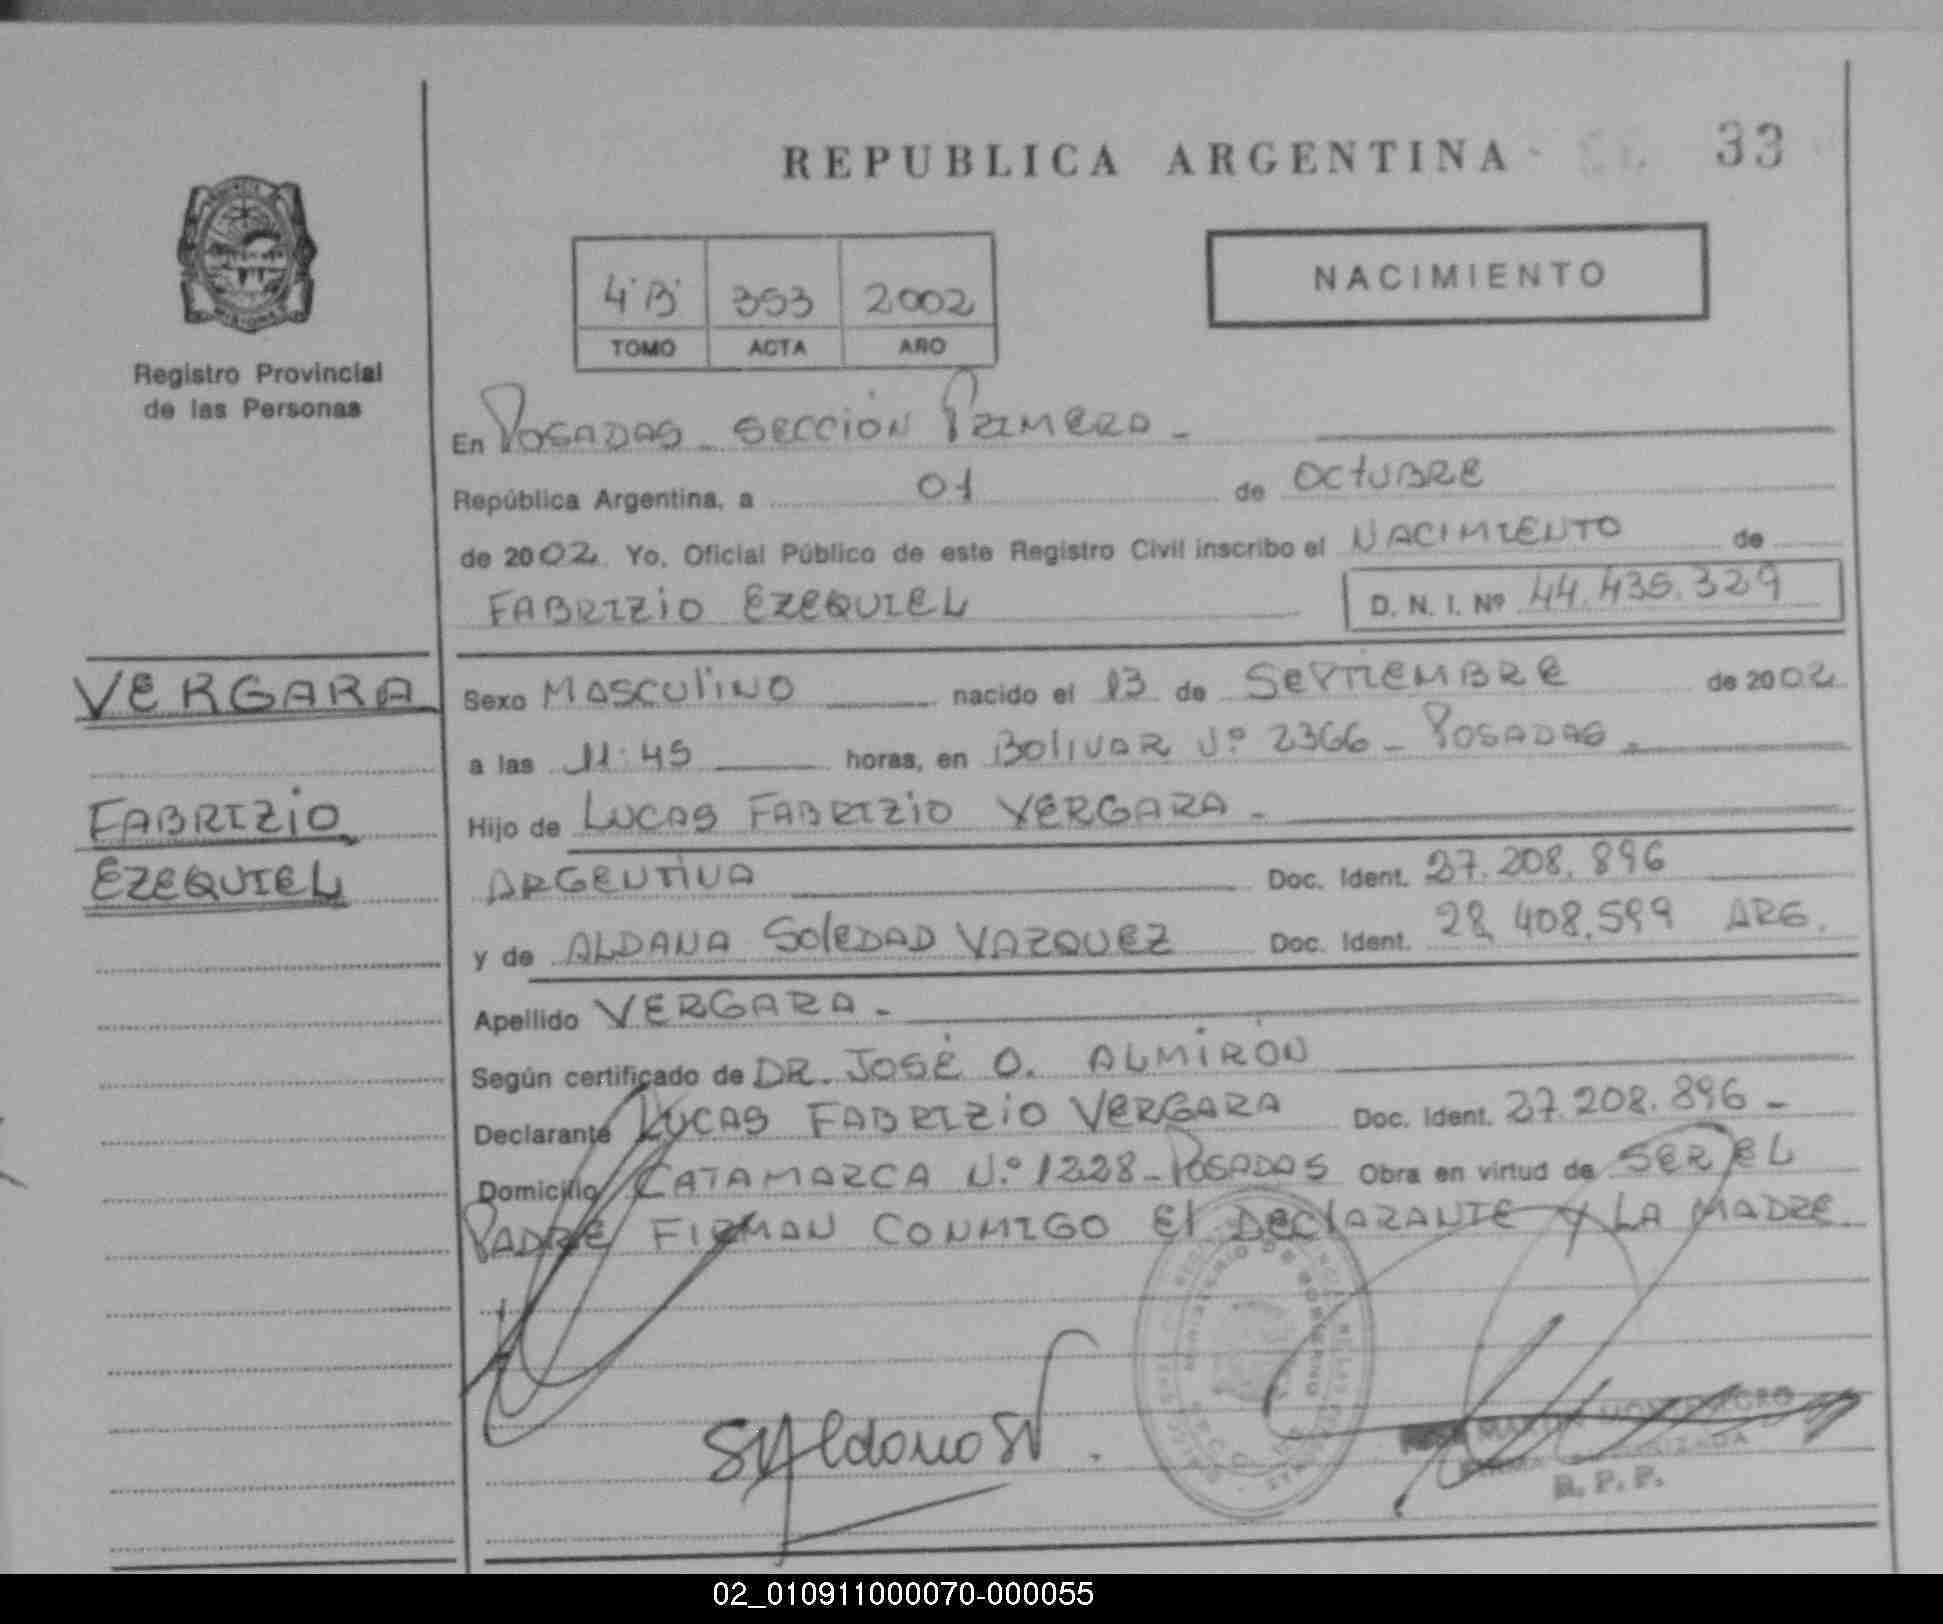 REPUBLICA ARGENTINA
33
4 "B" 353 2002
TOMO ACTA AÑO
NACIMIENTO
Registro Provincial
de las Personas
En POSADAS - SECCIÓN PRIMERA -
República Argentina, a 01 de OCTUBRE
de 2002 Yo, Oficial Público de este Registro Civil inscribo el NACIMIENTO de
FABRIZIO EZEQUIEL D. N. I. Nº 44.435.329
VERGARA
FABRIZIO
EZEQUIEL
Sexo MASCULINO nacido el 13 de SEPTIEMBRE de 2002
a las 11:45 horas, en BOLIVAR Nº 2366 - POSADAS.
Hijo de LUCAS FABRIZIO VERGARA -
ARGENTINA Doc. Ident. 27.208.896
y de ALDANA SOLEDAD VAZQUEZ Doc. Ident. 28.408.599 ARG.
Apellido VERGARA -
Según certificado de DR. JOSÉ O. ALMIRÓN
Declarante LUCAS FABRIZIO VERGARA Doc. Ident. 27.208.896 -
Domicilio CATAMARCA N.º 1228 - POSADAS Obra en virtud de SER EL
PADRE FIRMAN CONMIGO El DECLARANTE Y LA MADRE
R. P. P.
02_010911000070-000055